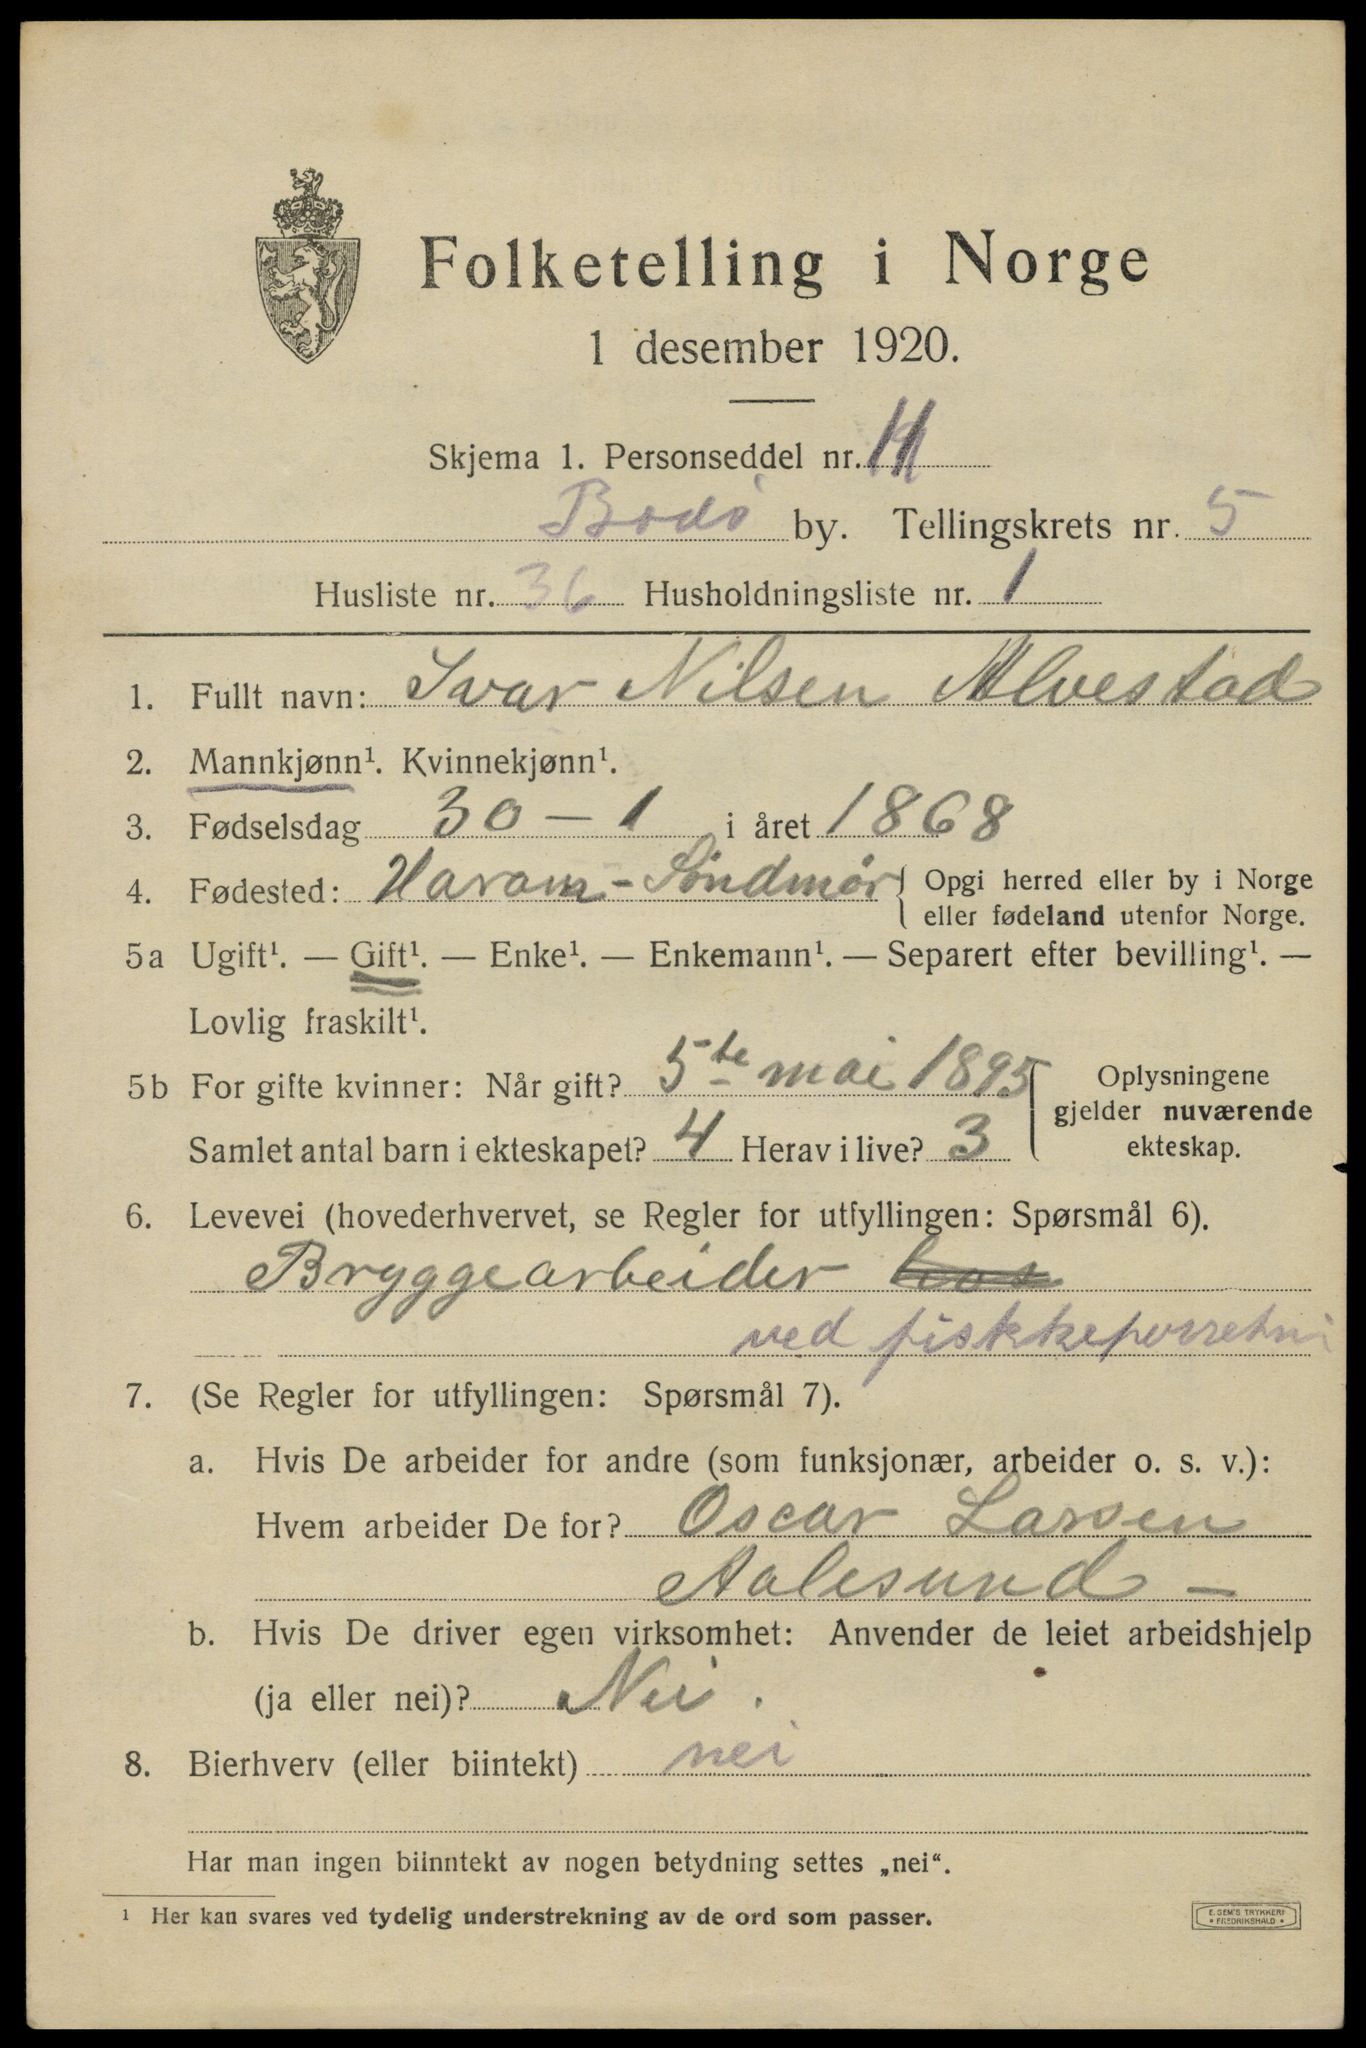 Folketelling i Norge
1 desember 1920.
Skjema 1. Personseddel nr.
Bodø by. Tellingskrets nr. 5
Husliste nr. 36 Husholdningsliste nr. 1
1. Fullt navn: Ivar Nilsen Alvestad
2. Mannkjønn¹. Kvinnekjønn¹.
3. Fødselsdag 30 – 1 i året 1868
4. Fødested: Haram - Söndmör { Opgi herred eller by i Norge
eller fødeland utenfor Norge.
5a Ugift¹. — Gift¹. — Enke¹. — Enkemann¹. — Separert efter bevilling¹. —
Lovlig fraskilt¹.
5b For gifte kvinner: Når gift? 5te mai 1895
Samlet antal barn i ekteskapet? 4 Herav i live? 3
Oplysningene
gjelder nuværende
ekteskap.
6. Levevei (hovederhvervet, se Regler for utfyllingen: Spørsmål 6).
Bryggearbeider hos
ved
7. (Se Regler for utfyllingen: Spørsmål 7).
a. Hvis De arbeider for andre (som funksjonær, arbeider o. s. v.):
Hvem arbeider De for? Oscar Larsen
Aalesund –
b. Hvis De driver egen virksomhet: Anvender de leiet arbeidshjelp
(ja eller nei)? Nei.
8. Bierhverv (eller biintekt) nei
Har man ingen biinntekt av nogen betydning settes „nei“.
¹ Her kan svares ved tydelig understrekning av de ord som passer.
E. SEM'S TRYKKERI
• FREDRIKSHALD •